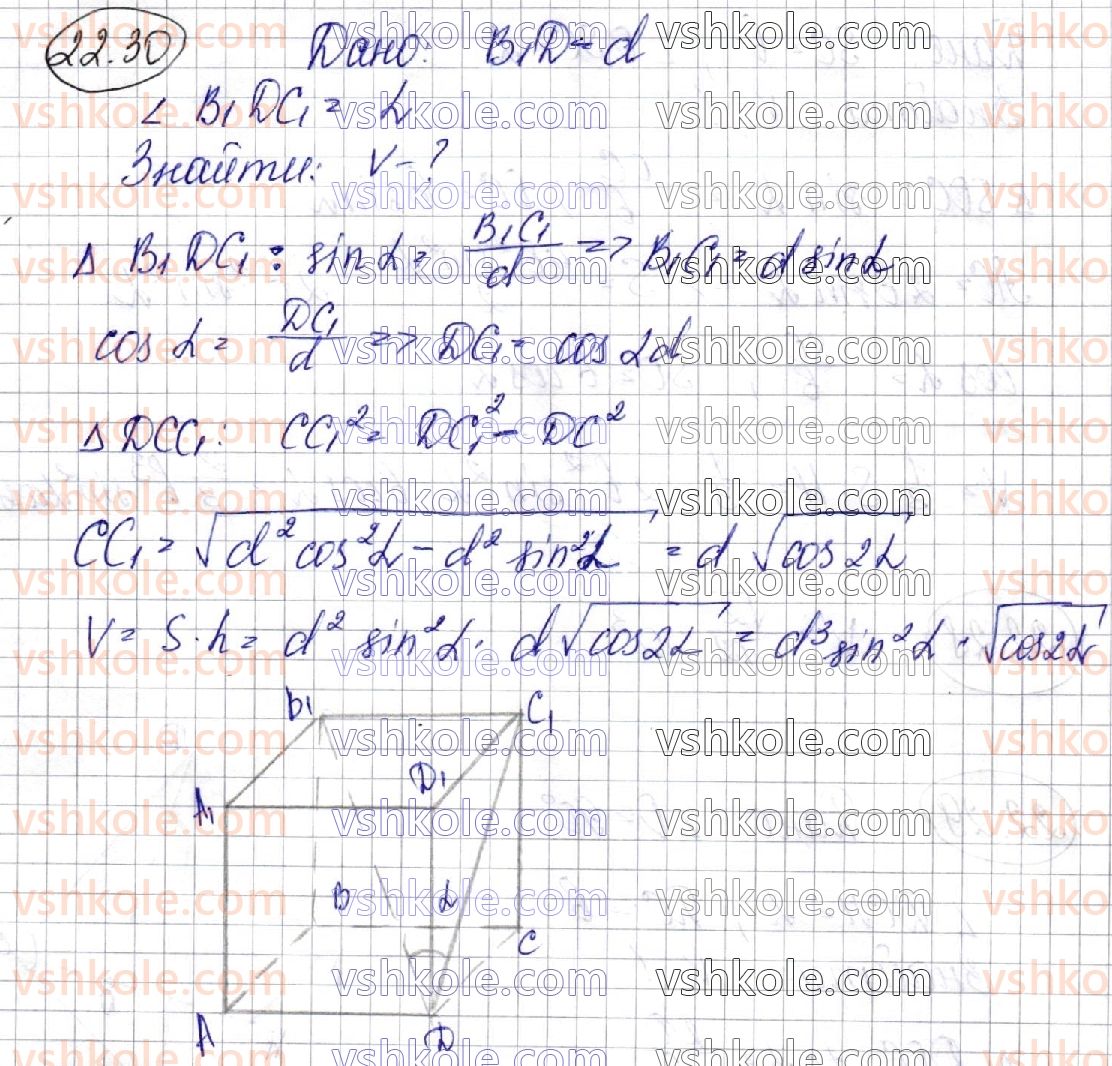 22.30 Дано: B₁D = d
∠ B₁DC₁ = α
Знайти: V - ?
Δ B₁DC₁: sin α = B₁C₁/d => B₁C₁ = d sin α
cos α = DC₁/d => DC₁ = cos αd
Δ DCC₁: CC₁² = DC₁² - DC²
CC₁ = √(d² cos²α - d² sin²α) = d √(cos 2α)
V = S · h = d² sin²α · d √(cos 2α) = d³ sin²α · √(cos 2α)
B₁ C₁
D₁
A₁
B α
C
A D
vshkole.com